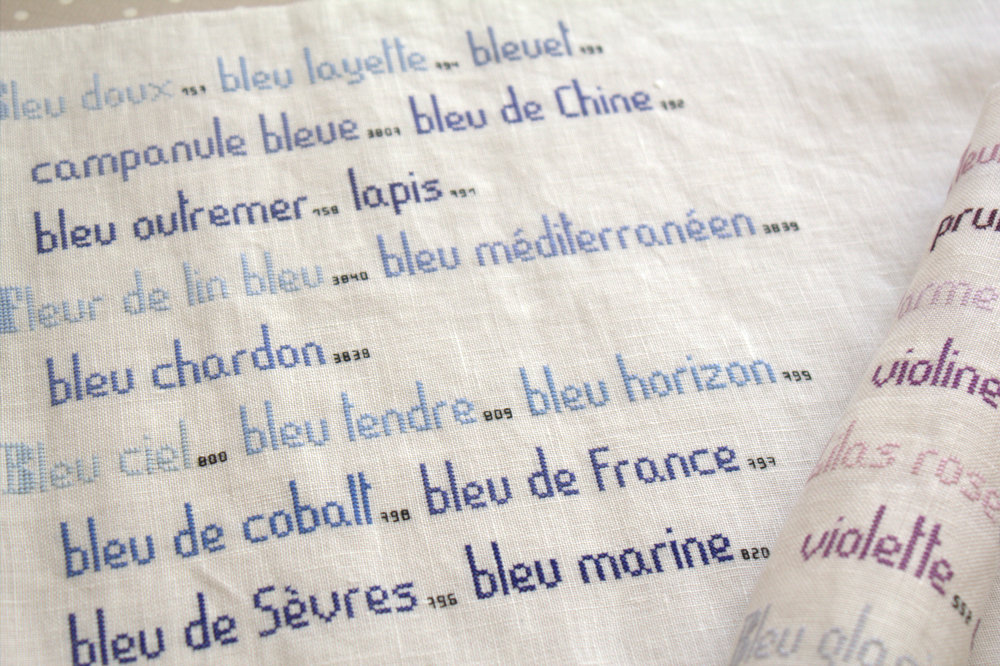 Bleu doux 157 bleu layette 794 bleuet 793
campanule bleue 3807 bleu de Chine 792
bleu outremer 158 lapis 791
Fleur de lin bleu 3840 bleu méditerranéen 3839
bleu chardon 3838
Bleu ciel 800 bleu tendre 809 bleu horizon 799
bleu de cobalt 798 bleu de France 797
bleu de Sèvres 796 bleu marine 820
violine
Lilas rose
violette 552
Bleu